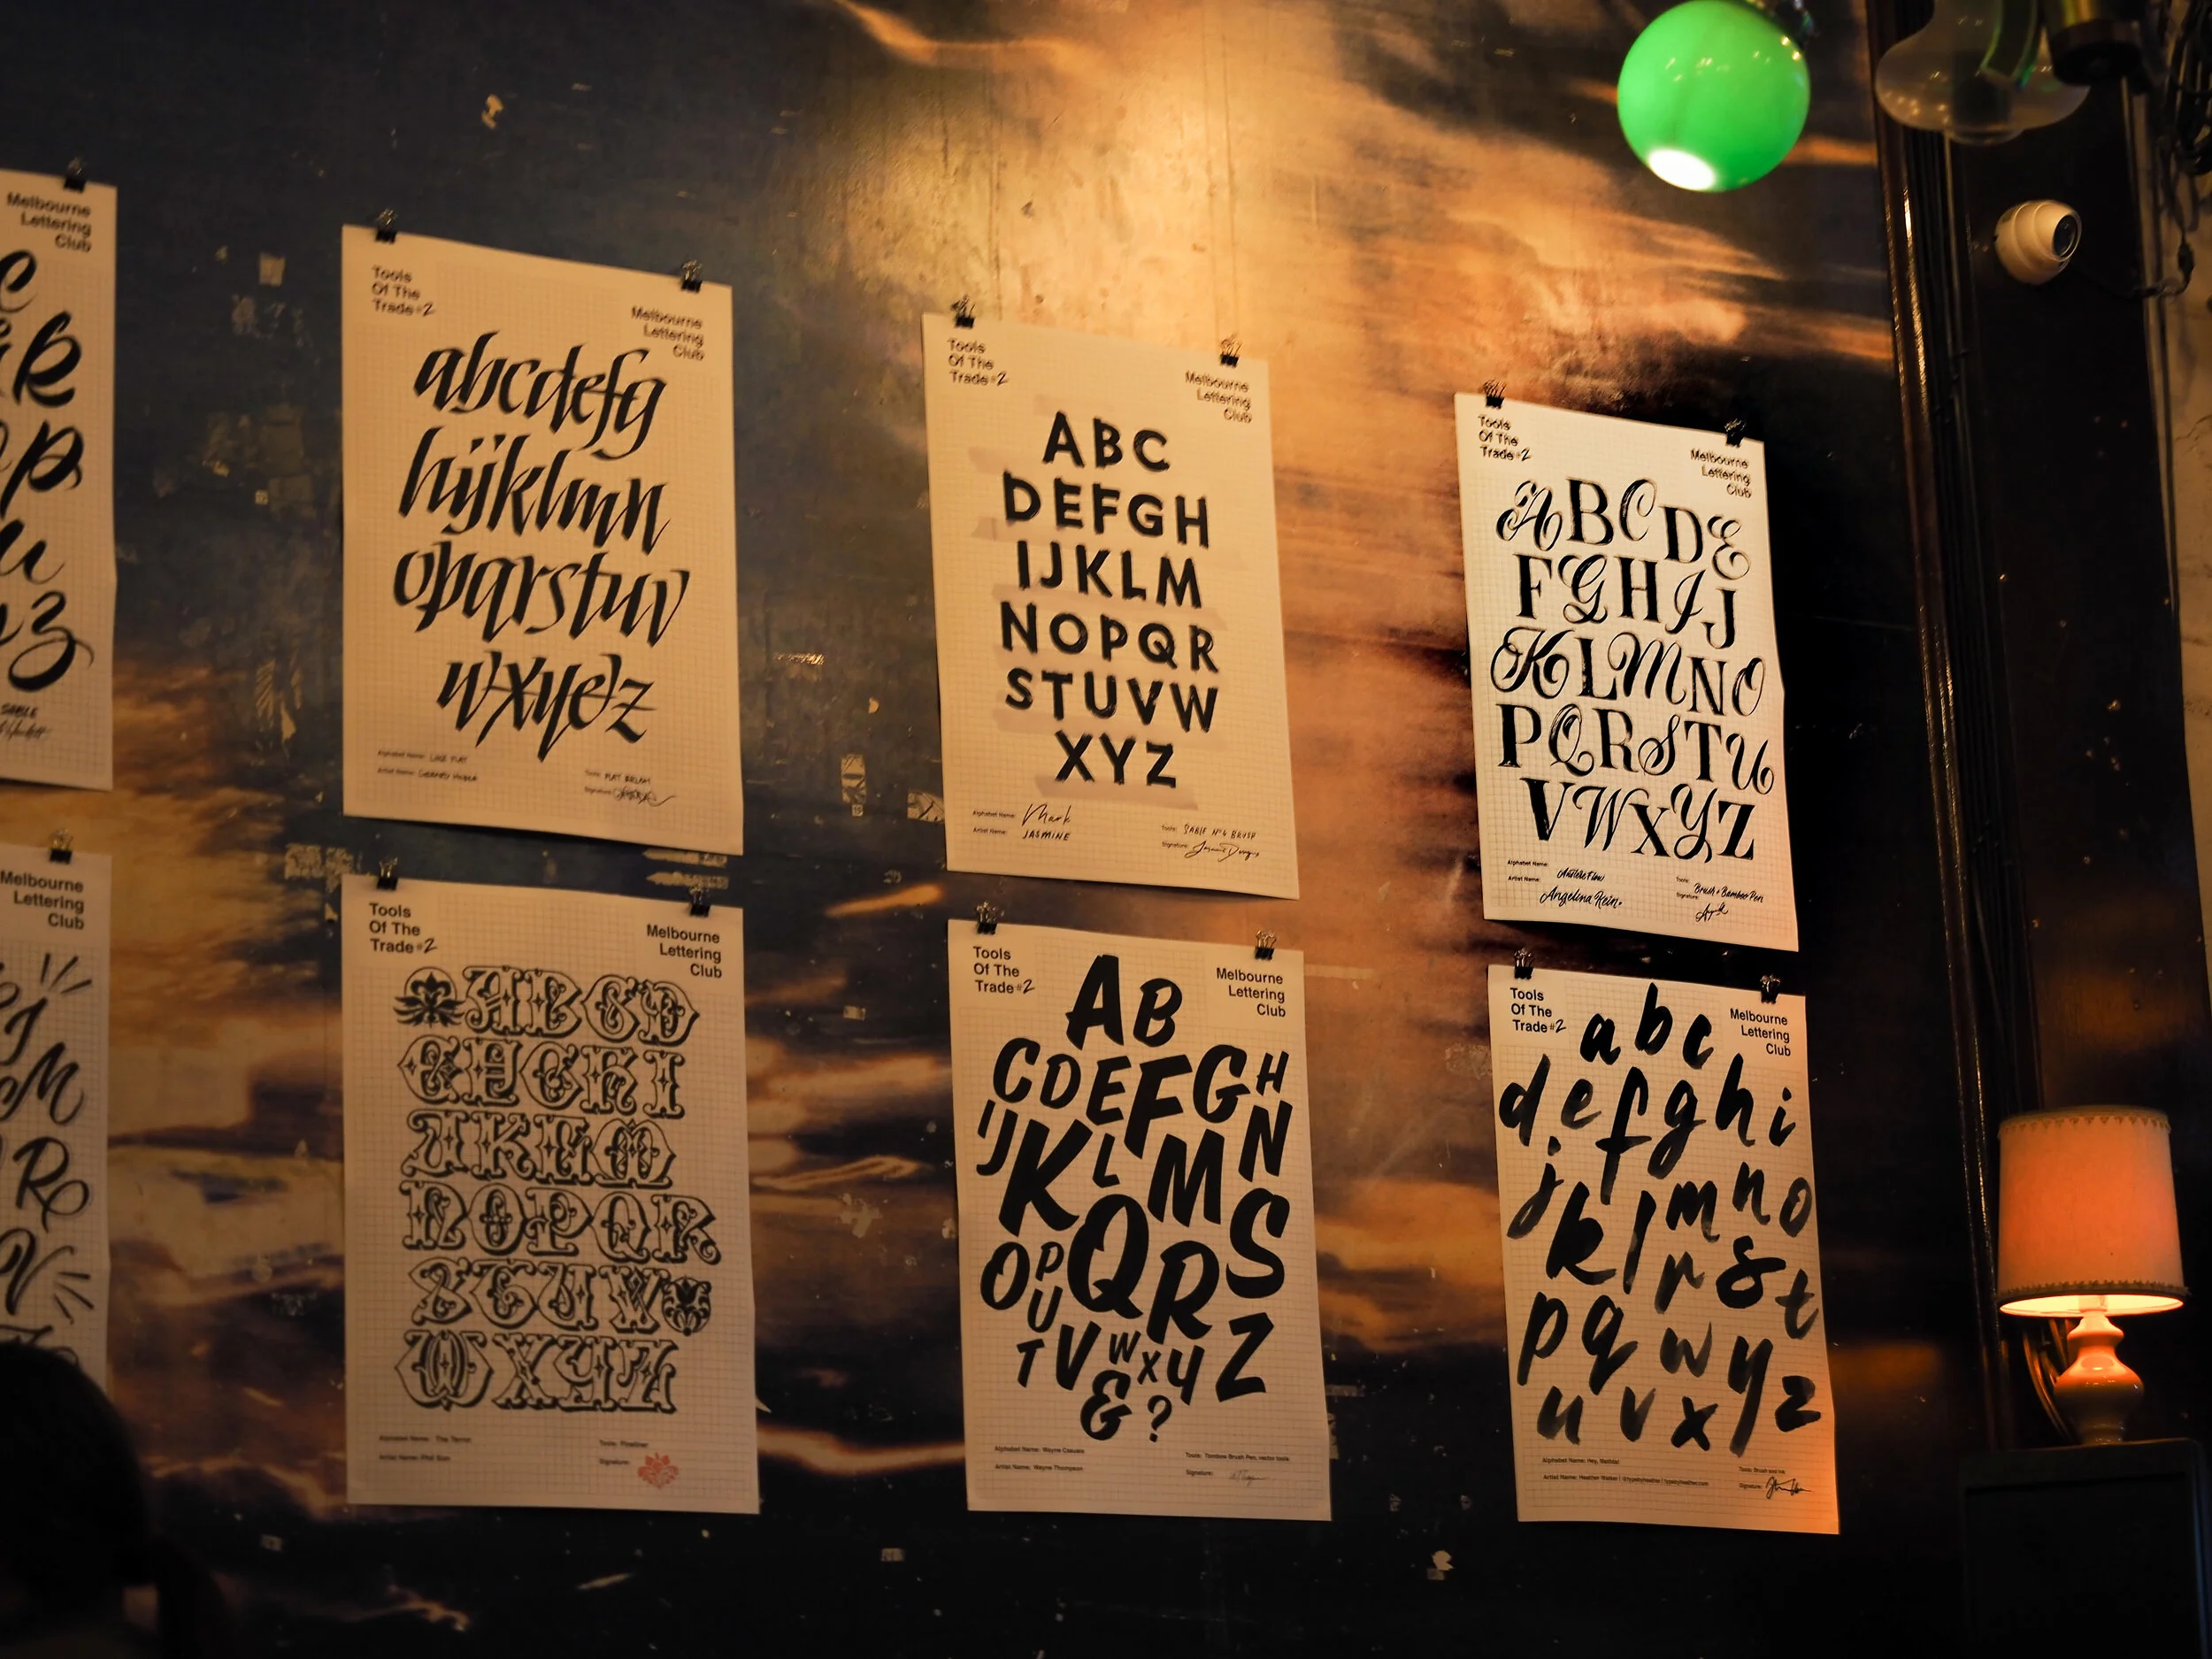 Melbourne
Lettering
Club
k
p
u
z
SABLE
Tools
Of The
Trade #2
Melbourne
Lettering
Club
abcdefg
hijklmn
opqrstuv
wxyz
Alphabet Name:
Artist Name:
Tools: FLAT BRUSH
Signature:
Tools
Of The
Trade #2
Melbourne
Lettering
Club
ABC
DEFGH
IJKLM
NOPQR
STUVW
XYZ
Alphabet Name: Mark
Artist Name: JASMINE
Tools: SABLE No6 BRUSH
Signature:
Tools
Of The
Trade #2
Melbourne
Lettering
Club
ABCDE
FGHIJ
KLMNO
PQRSTU
VWXYZ
Alphabet Name:
Artist Name: Angelina Rein.
Tools: Brush + Bamboo Pen
Signature:
Melbourne
Lettering
Club
J
M
R
V
Tools
Of The
Trade #2
Melbourne
Lettering
Club
ABCD
EFGHI
JKLM
NOPQR
STUV
WXYZ
Alphabet Name: The Terror
Artist Name: Phil
Tools: Fineliner
Signature:
Tools
Of The
Trade #2
Melbourne
Lettering
Club
AB
CDEFGH
IJKLMN
OPQRS
TUVWXYZ
&?
Alphabet Name: Wayne Casuals
Artist Name: Wayne Thompson
Tools: Tombow Brush Pen, vector tools
Signature:
Tools
Of The
Trade #2
Melbourne
Lettering
Club
abc
defghi
jklmno
pqrst
wyz
uvx
Alphabet Name: Hey, Matilda!
Artist Name: Heather Walker | @typebyheather | typebyheather.com
Tools: Brush and ink
Signature: